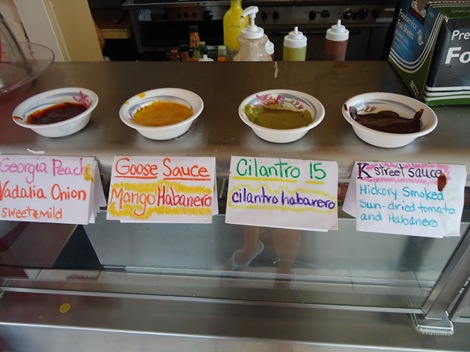 Georgia Peach
Vadalia Onion
sweet & mild
Goose Sauce
Mango Habanero
Cilantro 15
cilantro habanero
K street sauce
Hickory Smoked
Sun-dried tomato
and Habanero